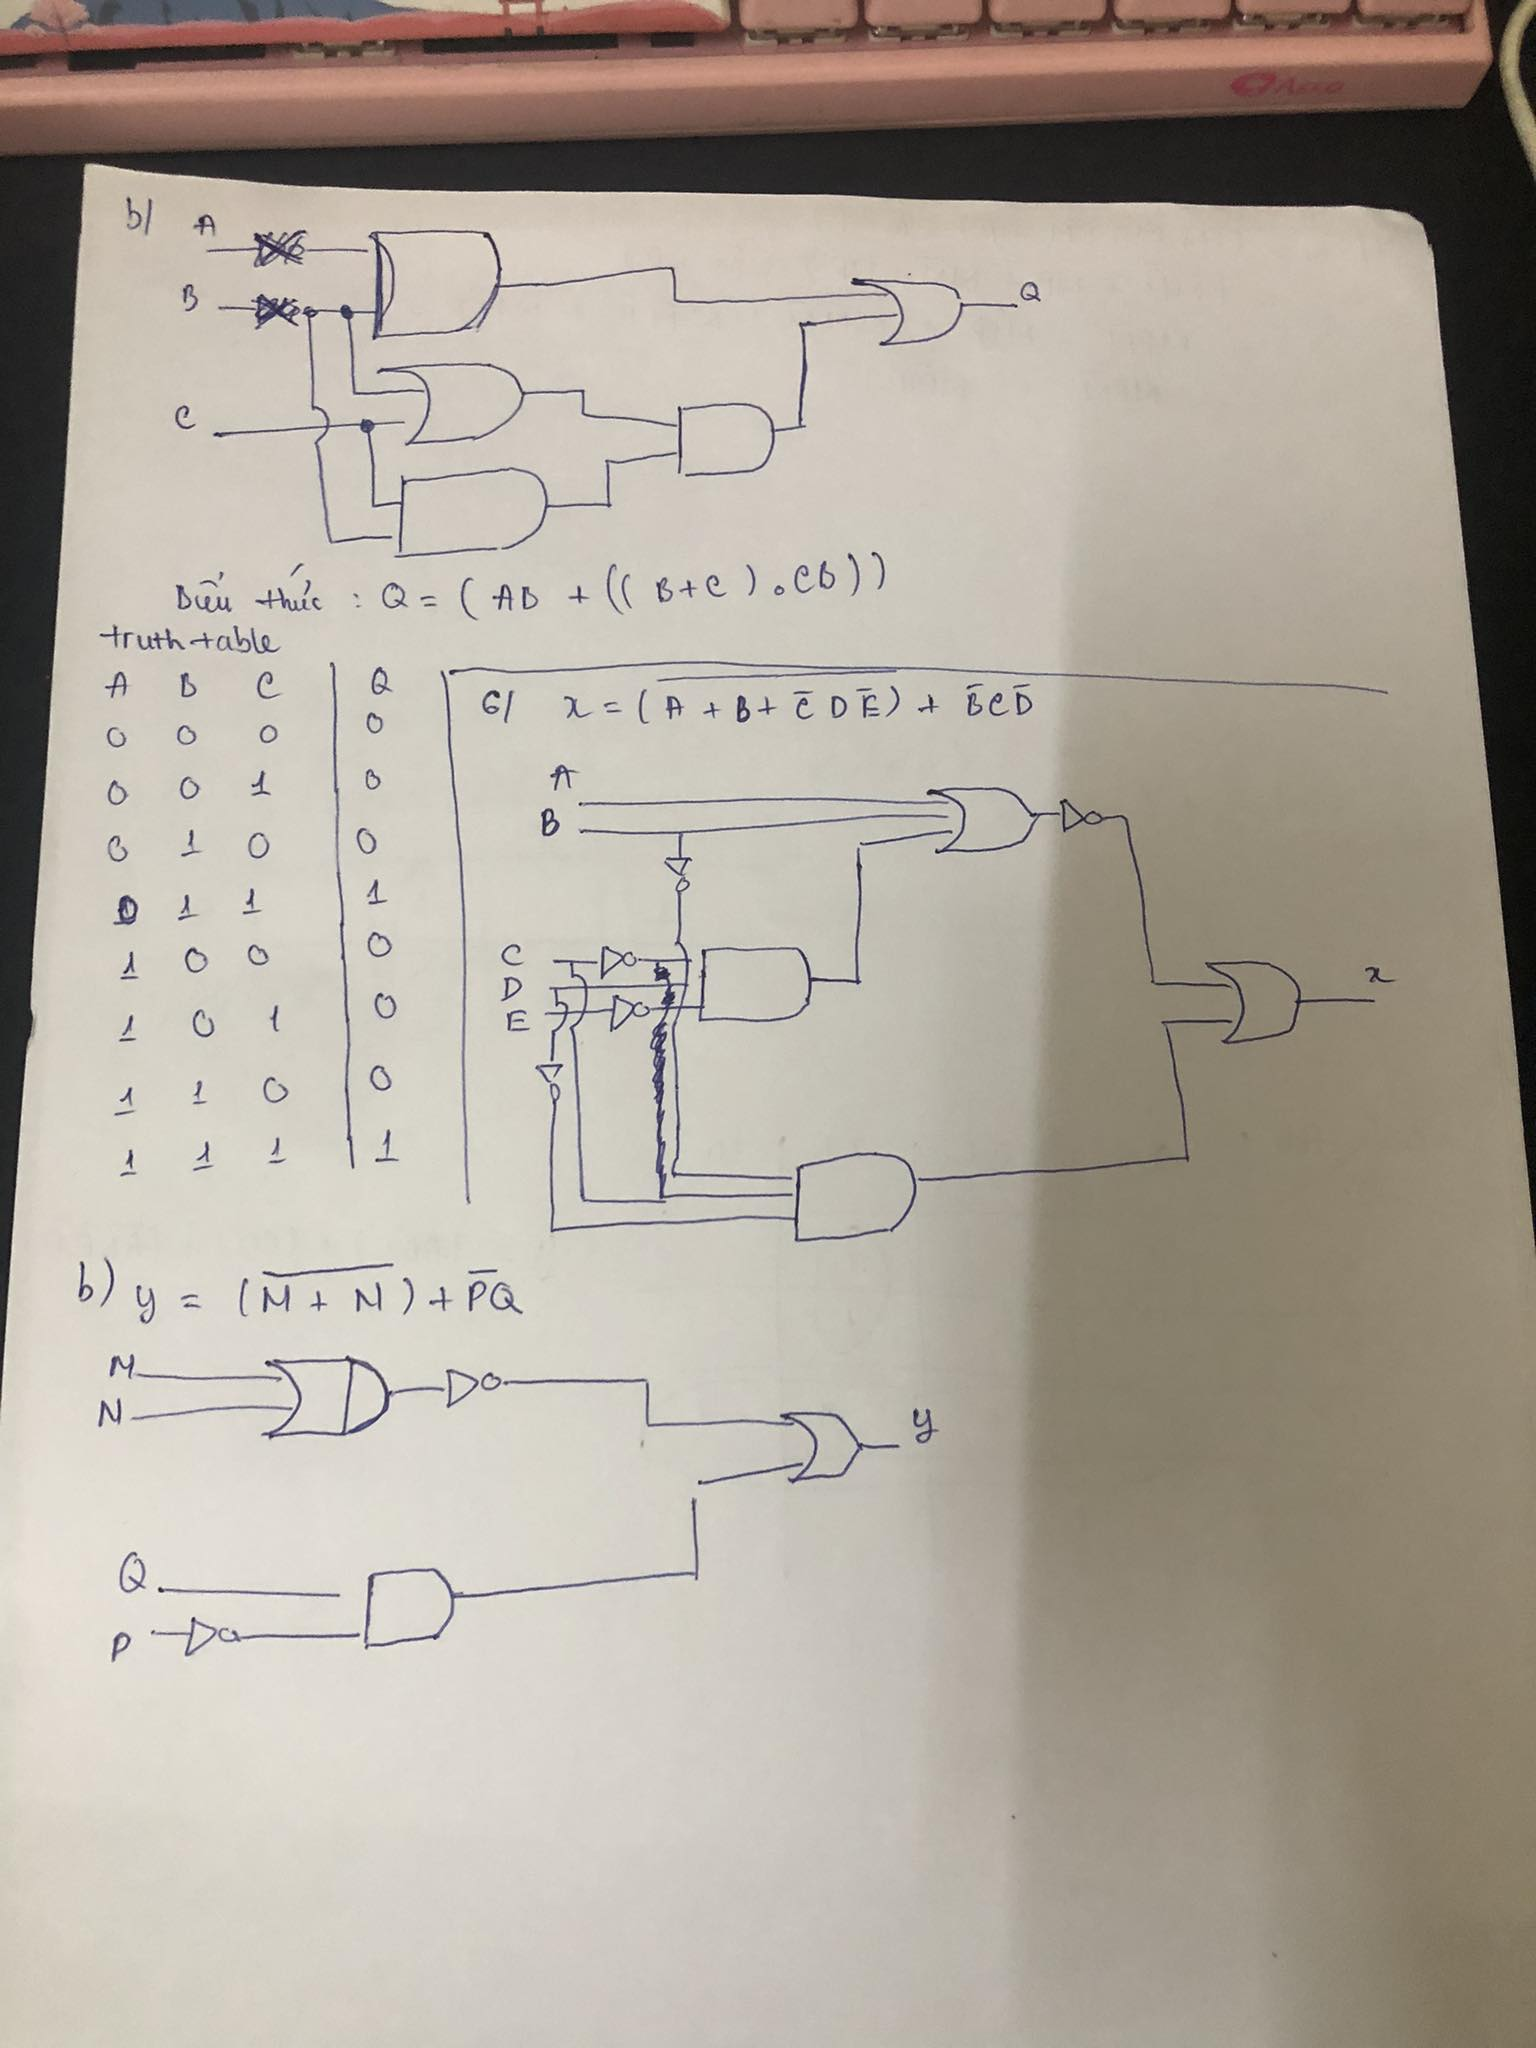 Acco
b/ A
B
C
Q
Biểu thức : Q = ( AB + (( B+C ) . CB))
truth table
A B C Q
0 0 0 0
0 0 1 0
0 1 0 0
0 1 1 1
1 0 0 0
1 0 1 0
1 1 0 0
1 1 1 1
6/ x = ( \overline{A + B + C̄ D Ē} ) + B̄ C D̄
A
B
C
D
E
x
b) y = ( \overline{M + N} ) + P̄Q
M
N
y
Q
P